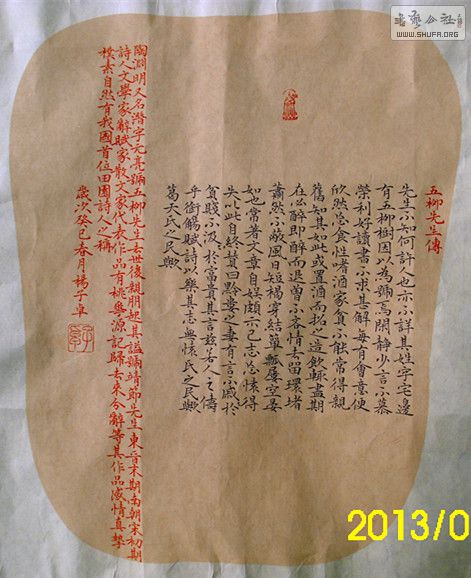 書藝公社
WWW.SHUFA.ORG
五柳先生傳
先生不知何許人也亦不詳其姓字宅邊
有五柳樹因以為號焉閑静少言不慕
榮利好讀書不求其解每有會意便
欣然忘食性嗜酒家貧不能常得親
舊知其如此或置酒而招之造飲輒盡期
在必醉即醉而退曾不吝情去留環堵
蕭然不蔽風日短褐穿結簞瓢屢空晏
如也常著文章自娛頗示己志忘懷得
失以此自終贊曰黔婁之妻有言不戚於
貧賤不汲於富貴其言茲若人之儔
乎銜觴賦詩以樂其志無懷氏之民歟
葛天氏之民歟
陶淵明人名潛字元亮號五柳先生去世後親朋起其謚號靖節先生東晉末期南朝宋初期
詩人文學家辭賦家散文家代表作品有桃花源記歸去來兮辭等其作品感情真摯
樸素自然有我國首位田園詩人之稱
歲次癸巳春月楊子卓
2013/0